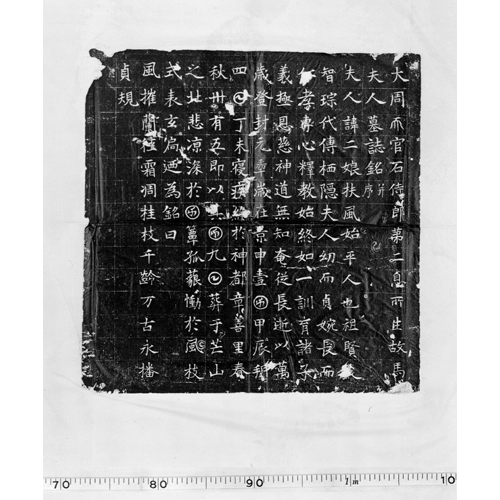 大周𠀑官石侍郎第二息所生故馬
夫人墓誌銘并序
夫人諱二娘扶風始平人也祖賢父
智琮代傳栖隱夫人幼而貞婉長而
孝專心釋教始終如一訓育諸子
義極恩慈神道無知奄從長逝以萬
歲登封元𠡦歲在景申壹囝甲辰朔
四𡆠丁未寝疾終於神都章善里春
秋卅有五即以其囝九𡆠葬于芒山
之北悲凉深於囝簟孤藐慟於風枝
式表玄扃迺為銘曰
風摧蘭莖霜凋桂枝千齡万古永播
貞規
70 80 90 1m 10